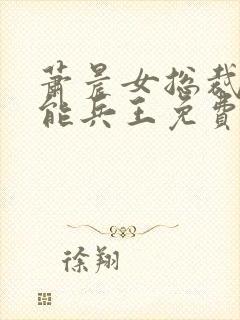 萧晨女总裁
能兵王免費
徐翔